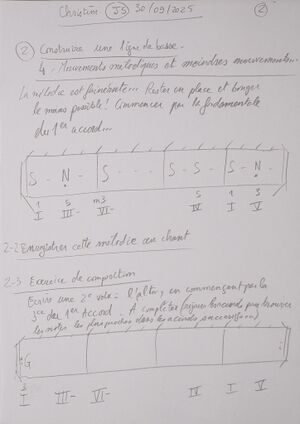 Christine JS 30/09/2025 2
2 Construire une ligne de basse.
4. Mouvements mélodiques et moindres mouvements...
La mélodie est fainéante... Rester en place et bouger
le moins possible! Commencer par la fondamentale
du 1er accord...
S - N - S - - - S - S - S - N -
1 5 m3 5 1 3
I III- VI- IV I V
2-2 Enregistrer cette mélodie au chant
2-3 Exercice de composition
Ecrire une 2e voix = l'alto, en commençant par la
3ce du 1er Accord. A compléter
les notes les plus proches dans les accords successifs...)
G
3
I III- VI- IV I V